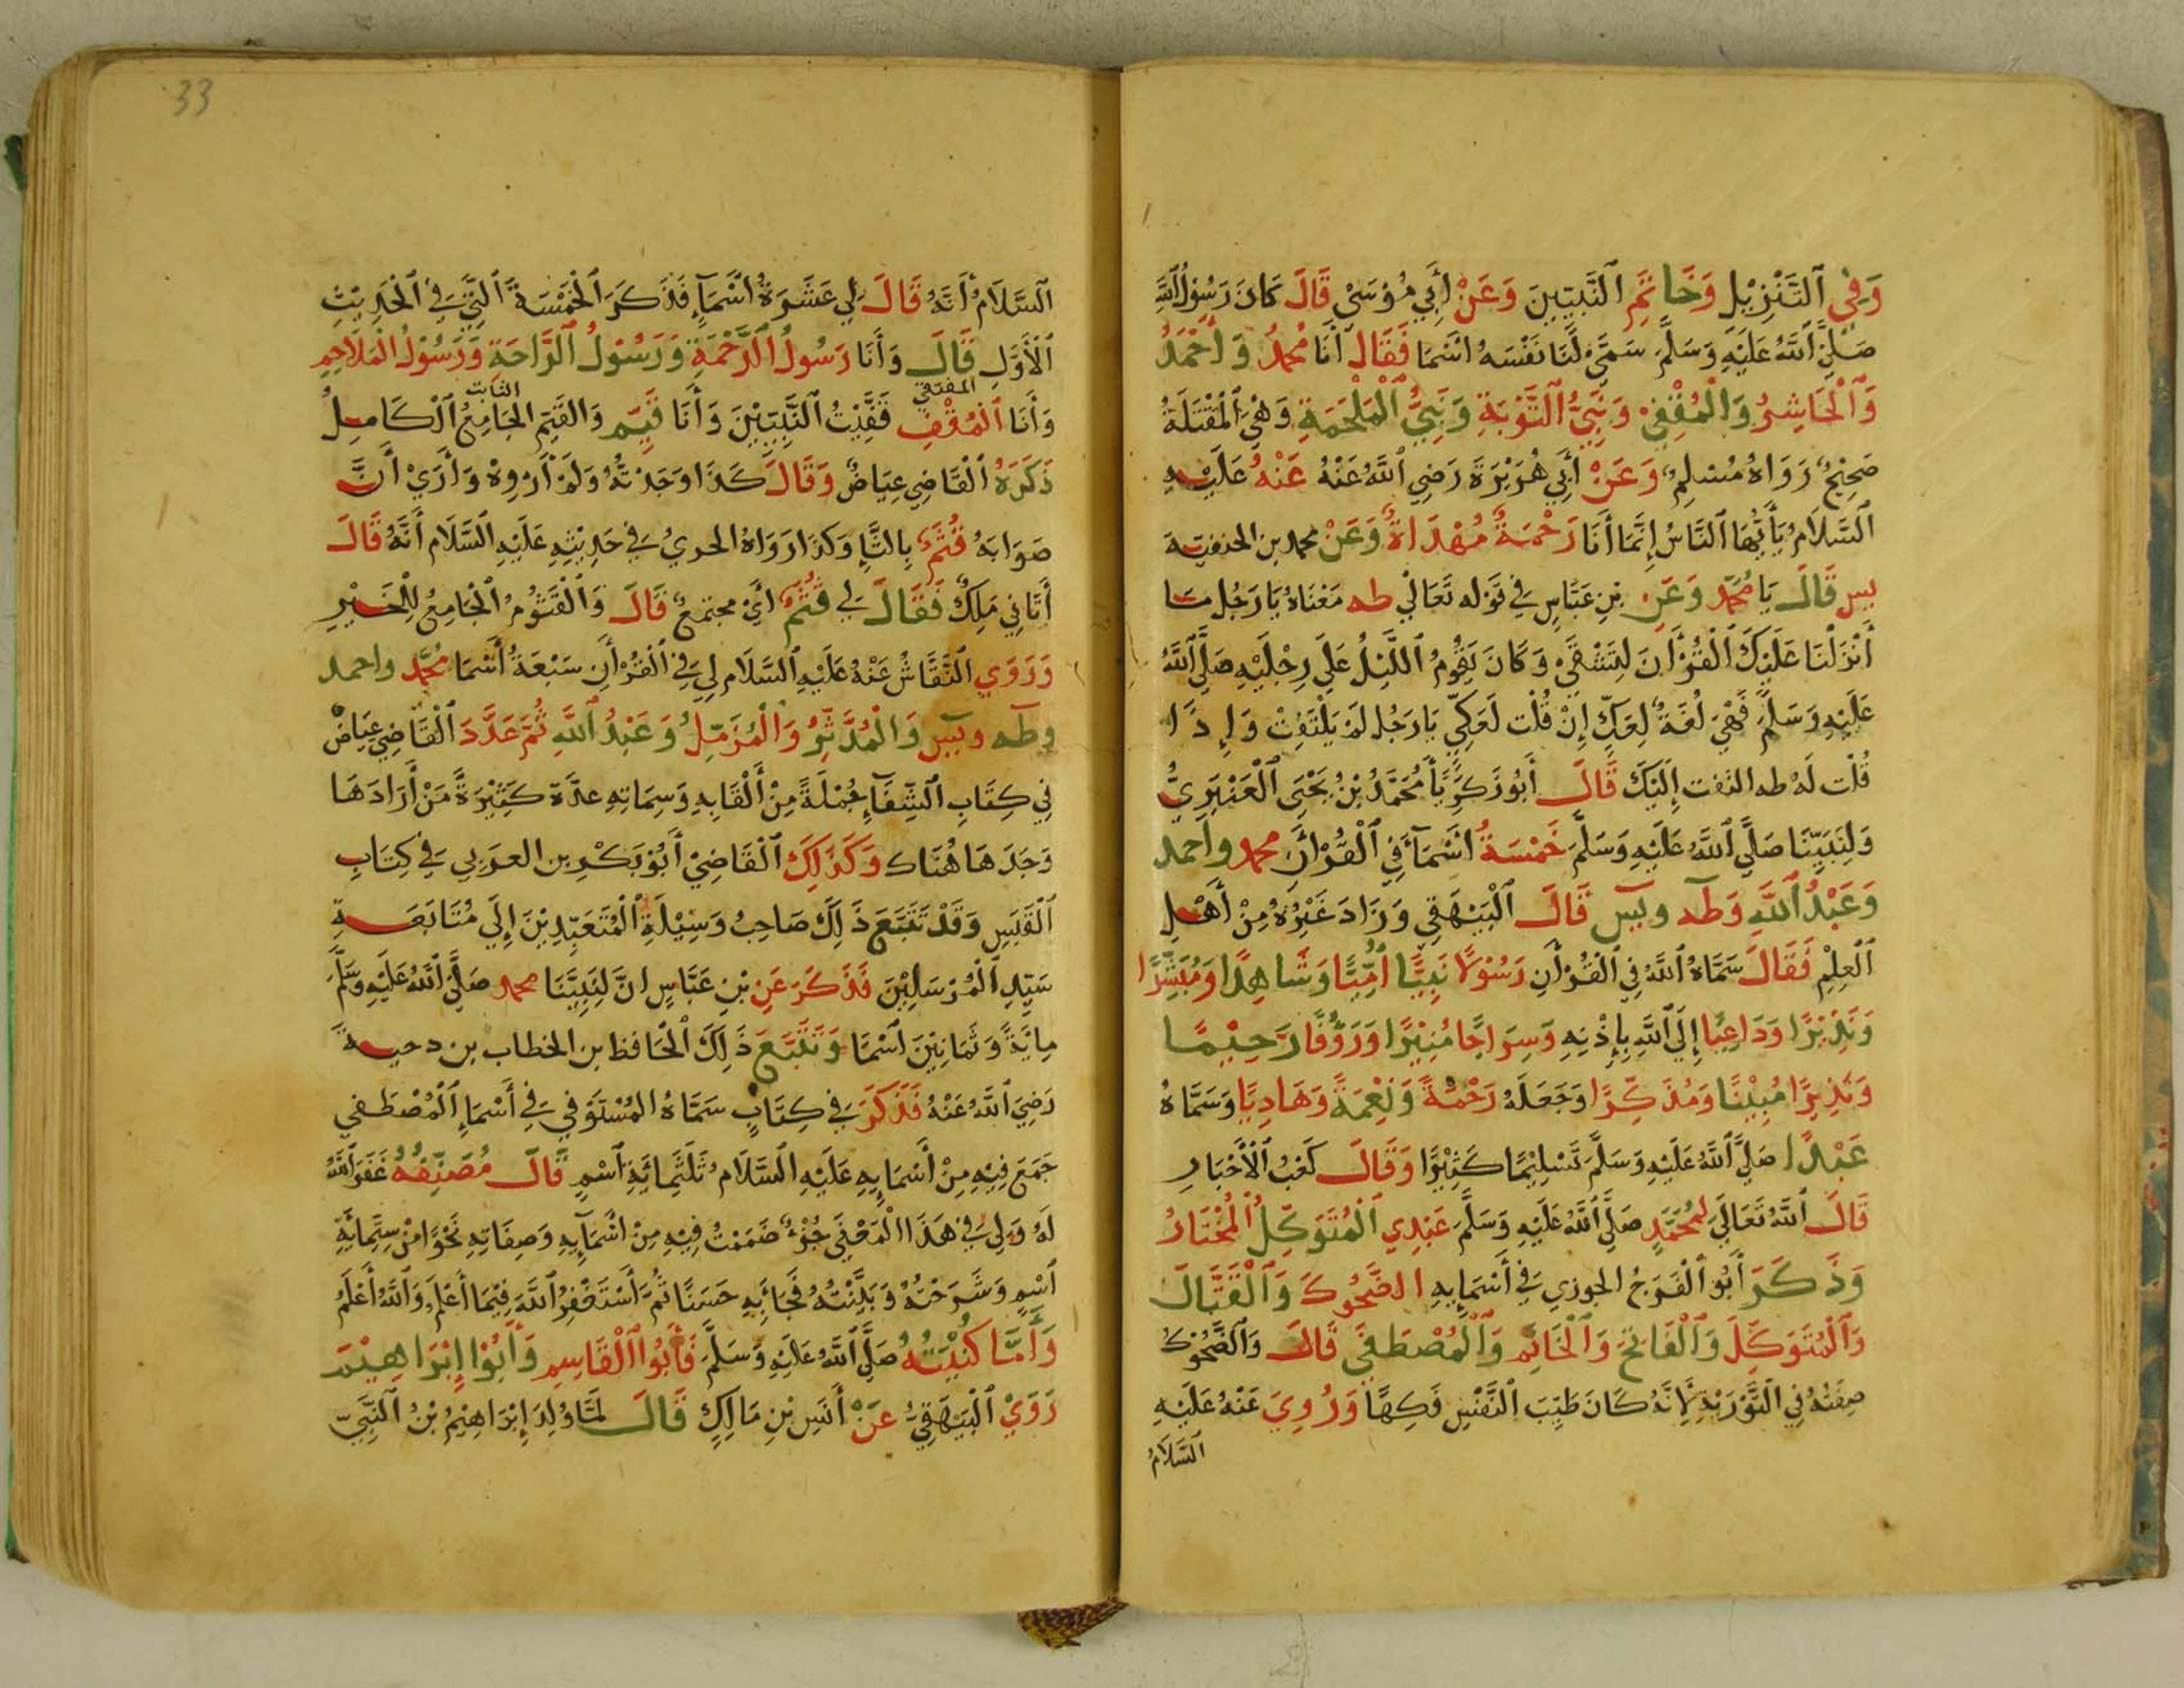 وَفِي ٱلتَّنْزِيْلِ وَخَاتَمِ ٱلنَّبِيِّينَ وَعَنْ أَبِي مُوْسَىٰ قَالَ كَانَ رَسُوْلُ ٱللَّهِ
صَلَّى ٱللَّهُ عَلَيْهِ وَسَلَّمَ سَمَّى لَنَا نَفْسَهُ اسْمَا فَقَالَ أَنَا مُحَمَّدٌ وَأَحْمَدُ
وَٱلْحَاشِرُ وَالْمُقَفِّيْ وَنَبِيُّ ٱلتَّوْبَةِ وَنَبِيُّ ٱلْمَلْحَمَةِ وَهِيَ الْمَقْتَلَةُ
صَحِيْحٌ رَوَاهُ مُسْلِمٌ وَعَنْ أَبِي هُرَيْرَةَ رَضِيَ ٱللَّهُ عَنْهُ عَنْهُ عَلَيْهِ
ٱلسَّلَامُ يَأَيُّهَا ٱلنَّاسُ إِنَّمَا أَنَا رَحْمَةٌ مُهْدَاةٌ وَعَنْ محمد بن الحنفية
يس قَالَ يَا مُحَمَّد وَعَنِ بْنِ عَبَّاسٍ فِي قَوْلِه تَعَالَى طه مَعْنَاهُ يَا رَجُل مَا
أَنْزَلْنَا عَلَيْكَ ٱلْقُرْأَنَ لِتَشْقَىٰ وَكَانَ يَقُوْمُ ٱللَّيْلُ عَلَى رِجْلَيْهِ صَلَّى ٱللَّهُ
عَلَيْهِ وَسَلَّمَ فَهِيَ لُغَةٌ لِعَكٍّ إِنْ قُلْت لَعَكِّيٍّ يَا رَجُلُ لَمْ يَلْتَفِتْ وَإِذَا
قُلْت لَهُ طه التفت إِلَيْكَ قَالَ أَبُو زَكَرِيَّا مُحَمَّدُ بْنُ يَحْيَى ٱلْعَنْبَرِيُّ
وَلِنَبِيِّنَا صَلَّى ٱللَّهُ عَلَيْهِ وَسَلَّمَ خَمْسَةُ أَسْمَآ فِي ٱلْقُرْأَنِ محمد وأحمد
وَعَبْدُ ٱللَّهِ وَطٓه ويٓس قَالَ ٱلْبَيْهَقِي وَزَادَ غَيْرُهُ مِنْ أَهْلِ
ٱلْعِلْمِ فَقَالَ سَمَّاهُ ٱللَّهُ فِي ٱلْقُرْأَنِ رَسُوْلًا نَبِيًّا أُمِّيًّا وَشَاهِدًا وَمُبَشِّرًا
وَنَذِيْرًا وَدَاعِيًا إِلَى ٱللَّهِ بِإِذْنِهِ وَسِرَاجًا مُنِيْرًا وَرَؤُفًا رَحِيْمًا
وَنَذِيرًا مُبِيْنًا وَمُذَكِّرًا وَجَعَلَهُ رَحْمَةً وَنِعْمَةً وَهَادِيًا وَسَمَّاهُ
عَبْدًا صَلَّى ٱللَّهُ عَلَيْهِ وَسَلَّمَ تَسْلِيْمًا كَثِيْرًا وَقَالَ كَعْبُ ٱلْأَحْبَارِ
قَالَ ٱللَّهُ تَعَالَى لِمُحَمَّدٍ صَلَّى ٱللَّهُ عَلَيْهِ وَسَلَّمَ عَبْدِي ٱلْمُتَوَكِّلُ ٱلْمُخْتَارُ
وَذَكَرَ أَبُو ٱلْفَرَجُ الجوزي فِي أَسْمَائِهِ الضَّحُوكَ وَٱلْقَتَّالَ
وَٱلْمُتَوَكِّلَ وَٱلْفَاتِحَ وَٱلْخَاتِم وَٱلْمُصْطَفَى قَالَ وَٱلضَّحُوْكُ
صِفَتُهُ فِي ٱلتَّوْرَيَةِ لِأَنَّهُ كَانَ طَيِّبَ ٱلنَّفْسِ فَكِهًا وَرُوِيَ عَنْهُ عَلَيْهِ
ٱلسَّلَامُ
33
ٱلسَّلَامُ أَنَّهُ قَالَ لِي عَشَرَةُ اسْمَآءٍ فَذَكَرَ ٱلْخَمْسَةَ ٱلَّتِي فِي ٱلْحَدِيْثِ
ٱلْأَوَّلِ قَالَ وَأَنَا رَسُولُ ٱلرَّحْمَةِ وَرَسُوْلُ ٱلرَّاحَةِ وَرَسُوْلُ ٱلْمَلَاحِمِ
المقتفي الثابت
وَأَنَا ٱلْمُقْفِ قَفَّيْتُ ٱلنَّبِيِّيْنَ وَأَنَا قَيِّم وَالقَيِّم الجَامِعُ ٱلْكَامِلُ
ذَكَرَهُ ٱلْقَاضِي عِيَاضٌ وَقَالَ كَذَا وَجَدْتُهُ وَلَمْ أَرْوِهْ وَأَرَىْ أَنَّ
صَوَابَهُ قُثَمٌ بِالثَّاءِ وَكَذَا رَوَاهُ الحربي فِي حَدِيْثِهِ عَلَيْهِ ٱلسَّلَام أَنَّهُ قَالَ
أَتَانِي مَلِكٌ فَقَالَ لِي قُثَمٌ أَيْ مجتمعٌ قَالَ وَٱلْقَثُوْمُ ٱلْجَامِعُ لِلْخَيْرِ
وَرَوَي ٱلنَّقَّاشُ عَنْهُ عَلَيْهِ ٱلسَّلَام لِي فِي ٱلْقُرْأَنِ سَبْعَةُ أَسْمَا مُحَمَّد واحمد
وطٓه ويٓس وَالْمُدَّثِّرُ وَالْمُزَمِّلُ وَعَبْدُ ٱللَّهِ ثُمَّ عَدَّدَ ٱلْقَاضِي عِيَاضٌ
فِي كِتَابِ ٱلشِّفَآءِ جُمْلَةً مِنْ أَلْقَابِهِ وَسِمَاتِهِ عدَّة كَثِيْرَةً مَنْ أَرَادَهَا
وَجَدَهَا هُنَاك وَكَذَلِكَ ٱلْقَاضِيْ أَبُوْ بَكْرِ بن العربي فِي كِتَابِ
ٱلْقَبَسِ وَقَدْ تَتَبَّعَ ذَلِكَ صَاحِبُ وَسِيْلَةِ ٱلْمُتَعَبِّدِيْنَ إِلَى مُتَابَعَةِ
سَيِّدِ ٱلْمُرْسَلِيْنَ فَذَكَرَ عَنِ بْنِ عَبَّاسٍ انَّ لِنَبِيِّنَا محمد صَلَّى ٱللَّهُ عَلَيْهِ وَسَلَّمَ
مِايَةً وَثَمَانِيْنَ اسْمَا وَتَتَبَّعَ ذَلِكَ ٱلْحَافظ بن الخطاب بن دحية
رَضِيَ ٱللَّهُ عَنْهُ فَذَكَرَ فِي كِتَابٍ سَمَّاهُ المُسْتَوْفِي فِي أَسْمَاءِ ٱلْمُصْطَفِي
جَمَعَ فِيْهِ مِنْ أَسْمَائِهِ عَلَيْهِ ٱلسَّلَامُ ثَلَثَمِائَةِ ٱسْمٍ قَالَ مُصَنِّفُهُ غَفَرَ ٱللَّهُ
لَهُ وَلِي فِي هَذَا ٱلْمَعْنَى جُزْءٌ ضَمَمْتُ فِيْهِ مِنْ اسْمَآئِهِ وَصِفَاتِهِ نَحْوًا مْن سِتِّمِائَةِ
ٱسْمٍ وَشَرَحْتُهُ وَبَيَّنْتُهُ فَجَاءَ بِهِ حَسَنًا ثُمَّ أَسْتَغْفِرُ ٱللَّهَ فِيْمَا أَعْلَمُ وَٱللَّهُ أَعْلَمُ
وَأَمَّا كُنْيَتُهُ صَلَّى ٱللَّهُ عَلَيْهِ وَسَلَّمَ فَأَبُوا ٱلْقَاسِمِ وَأَبُوْا إِبْرَاهِيْمَ
رَوَيْ ٱلْبَيْهَقِيُّ عَنْ أَنَسِ بْنِ مَالِكٍ قَالَ لَمَّا وُلِدَ إِبْرَاهِيْمُ بْنُ ٱلنَّبِيِّ